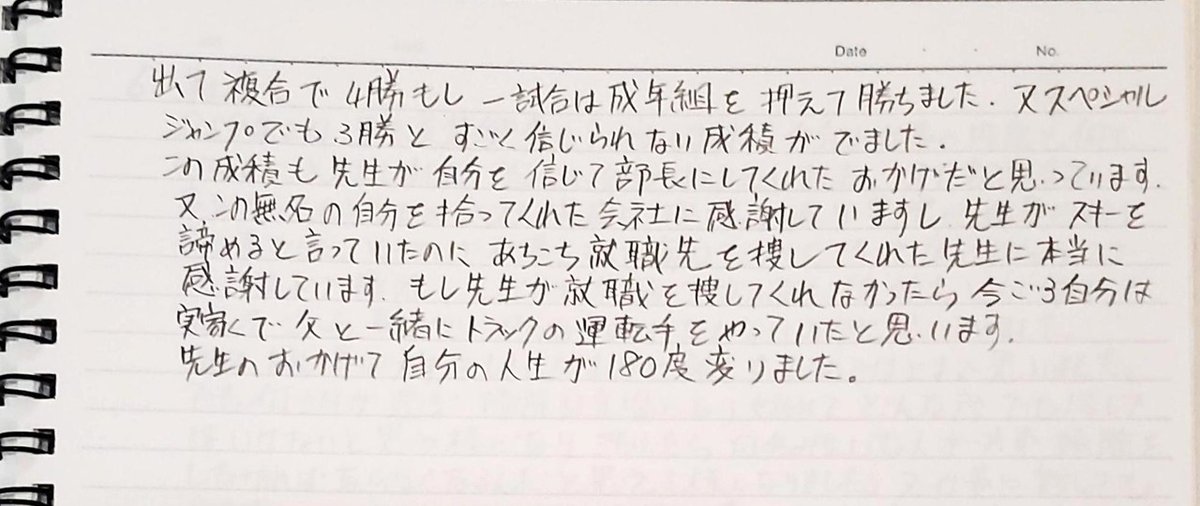 Date ・ ・ No.
出て複合で4勝もし一試合は成年組を押えて勝ちました. 又スペシャル
ジャンプでも3勝とすごく信じられない成積がでました.
この成積も先生が自分を信じて部長にしてくれたおかげだと思っています.
又、この無名の自分を拾ってくれた会社に感謝していますし 先生がスキーを
諦めると言っていたのに あちこち就職先を捜してくれた先生に本当に
感謝しています. もし先生が就職を捜してくれなかったら今ごろ自分は
実家で父と一緒にトラックの運転手をやっていたと思います.
先生のおかげで自分の人生が180度変りました。